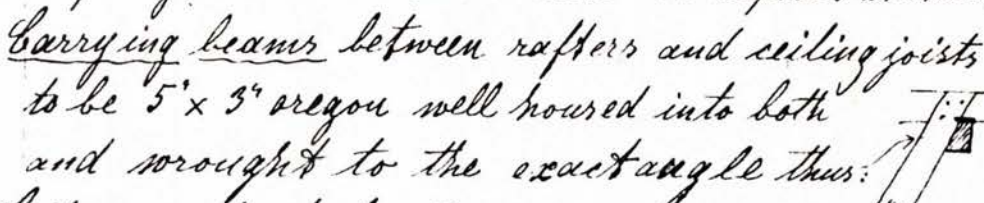 Carrying beams between rafters and ceiling joists
to be 5" x 3" oregon well housed into both
and wrought to the exact angle thus: